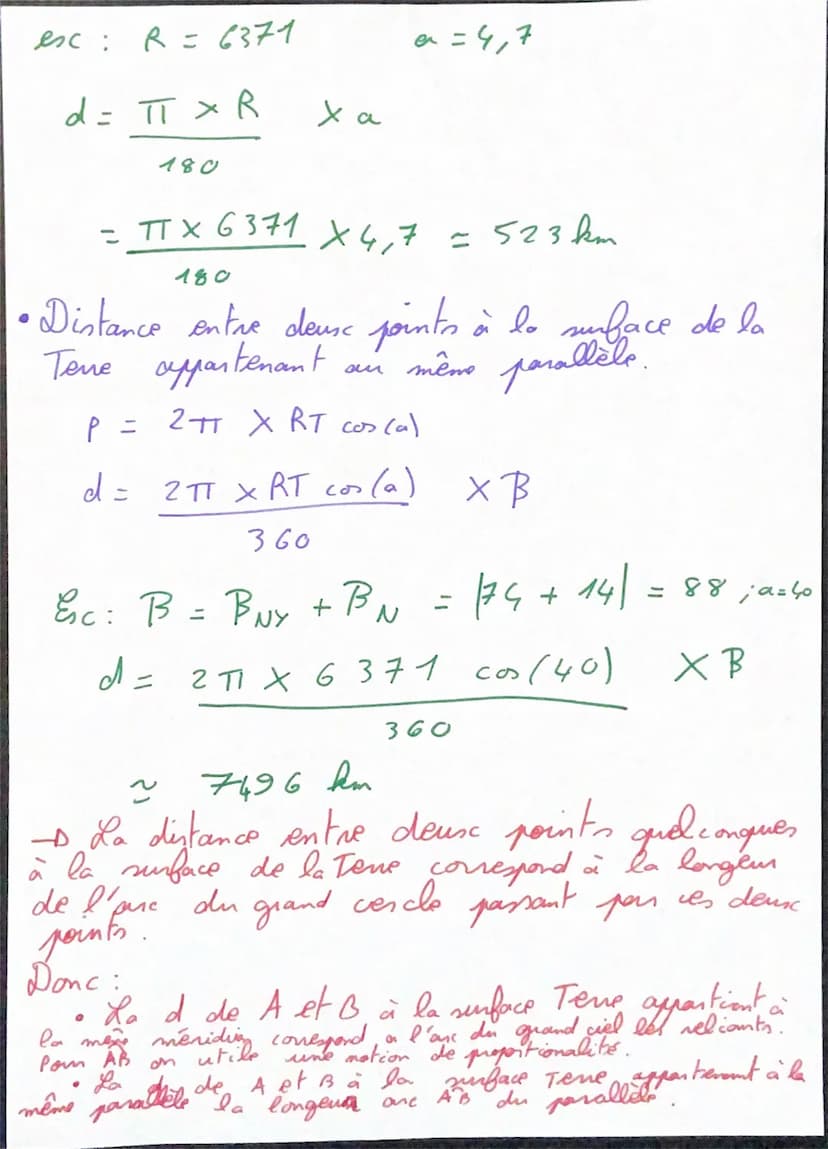 esc : R = 6371 a = 4,7
d = π × R / 180 × a
= π × 6371 / 180 × 4,7 = 523 km
• Distance entre deux points à la surface de la
Terre appartenant au même parallèle.
P = 2π × RT cos(a)
d = 2π × RT cos(a) / 360 × B
Ex : B = B_NY + B_N = |74 + 14| = 88 ; a=40
d = 2π × 6371 cos(40) / 360 × B
≃ 7496 km
→ La distance entre deux points quelconques
à la surface de la Terre correspond à la longeur
de l'arc du grand cercle passant par ces deux
points.
Donc :
• La d de A et B à la surface Terre appartient à
la même méridien correspond a l'arc du grand ciel les reliants.
Pour AB on utile une notion de proportionalité.
• La de A et B à la surface Terre appartenant à la
même parallèle la longeur arc AB du parallèle.